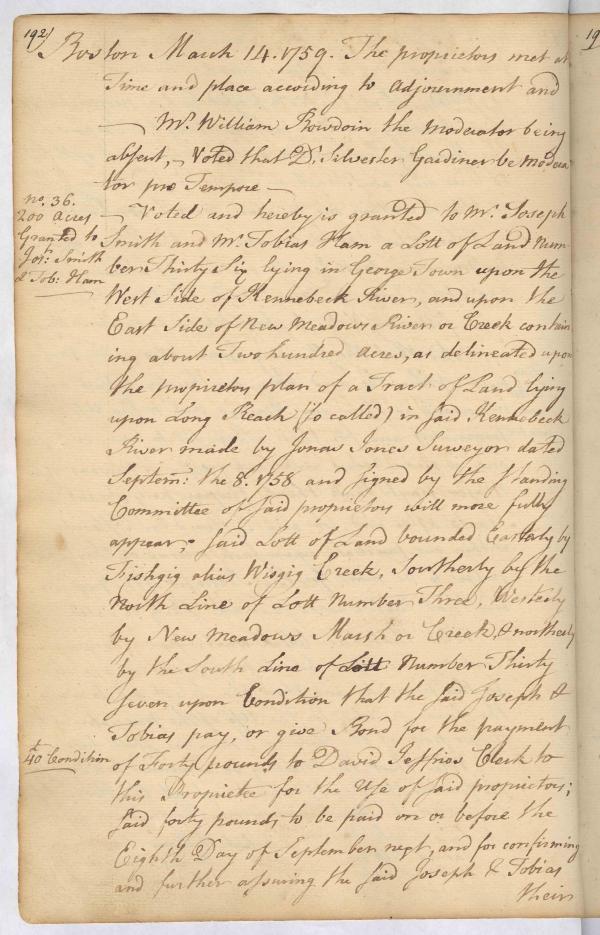 192)
Boston March 14. 1759. The proprietors met at
Time and place according to adjournment and
— Mr. William Bowdoin the Moderator being
absent, — Voted that Dr. Silvester Gardiner be Modera
tor pro Tempore —
no. 36.
200 Acres
Granted to
Jos: Smith
& Tob: Ham
— Voted and hereby is granted to Mr. Joseph
Smith and Mr. Tobias Ham a Lott of Land Num-
ber Thirty Six lying in George Town upon the
West Side of Kennebeck River, and upon the
East Side of New Meadows River or Creek contain
ing about Two hundred Acres, as delineated upon
the proprietors plan of a Tract of Land lying
upon Long Reach (so called) in said Kennebeck
River made by Jonas Jones Surveyor dated
Septem: the 8. 1758 and signed by the Standing
Committee of said proprietors will more fully
appear; said Lott of Land bounded Easterly by
Fishgig alias Wisgig Creek, Southerly by the
North Line of Lott Number Three, Westerly
by New Meadows Marsh or Creek, & northerly
by the South Line of Lott Number Thirty
seven upon Condition that the said Joseph &
Tobias pay, or give Bond for the payment
£40 Condition
of Forty pounds to David Jeffries Clerk to
this Proprietee for the Use of said proprietors;
said forty pounds to be paid on or before the
Eighth Day of September next, and for confirming
and further assuring the said Joseph & Tobias
their
19